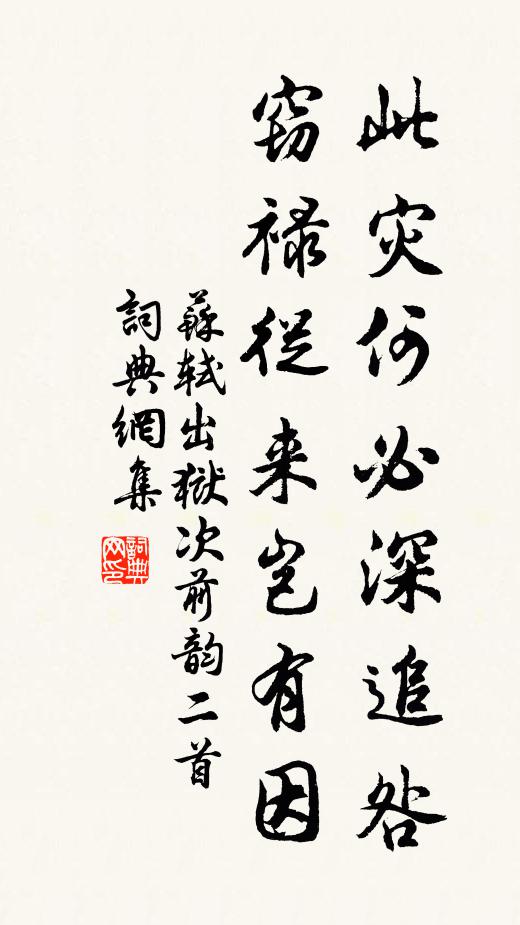 此灾何必深追咎
窃禄從来岂有因
蘇軾出獄次前韵二首
詞典網集
詞典网印